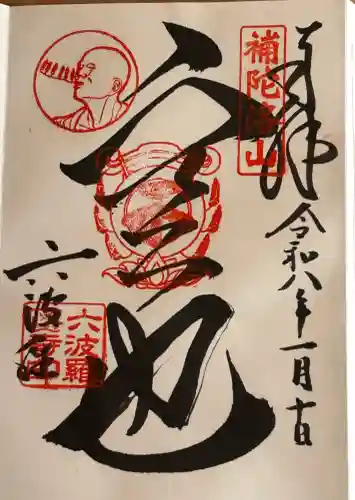 奉拝
補陀洛山
令和八年一月十日
空也
六波羅
六波羅